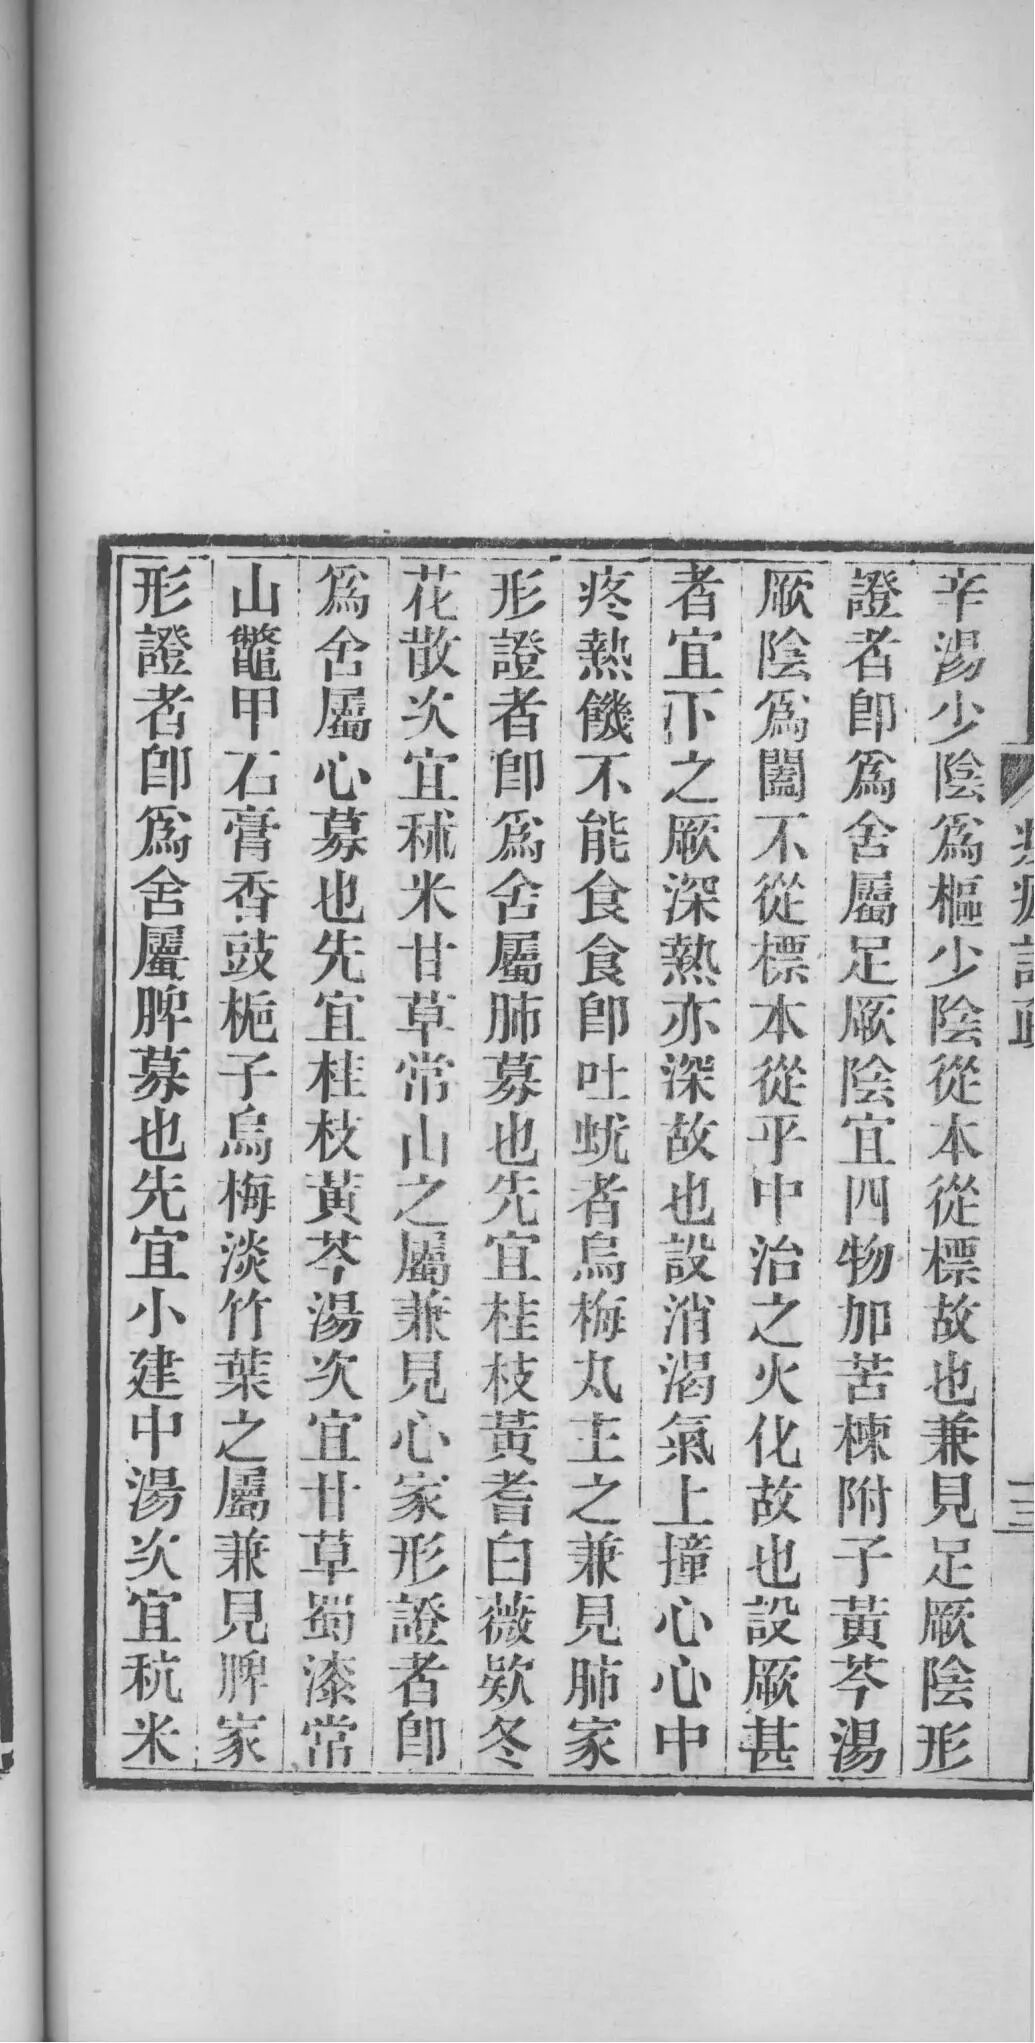 辛湯少陰爲樞少陰從本從標故也兼見足厥陰形
證者卽爲舍屬足厥陰宜四物加苦楝附子黃芩湯
厥陰爲闔不從標本從乎中治之火化故也設厥甚
者宜下之厥深熱亦深故也設消渴氣上撞心心中
疼熱饑不能食食卽吐蚘者烏梅丸主之兼見肺家
形證者卽爲舍屬肺募也先宜桂枝黃耆白薇欵冬
花散次宜秫米甘草常山之屬兼見心家形證者卽
爲舍屬心募也先宜桂枝黃芩湯次宜甘草蜀漆常
山鼈甲石膏香豉梔子烏梅淡竹葉之屬兼見脾家
形證者卽爲舍屬脾募也先宜小建中湯次宜秔米